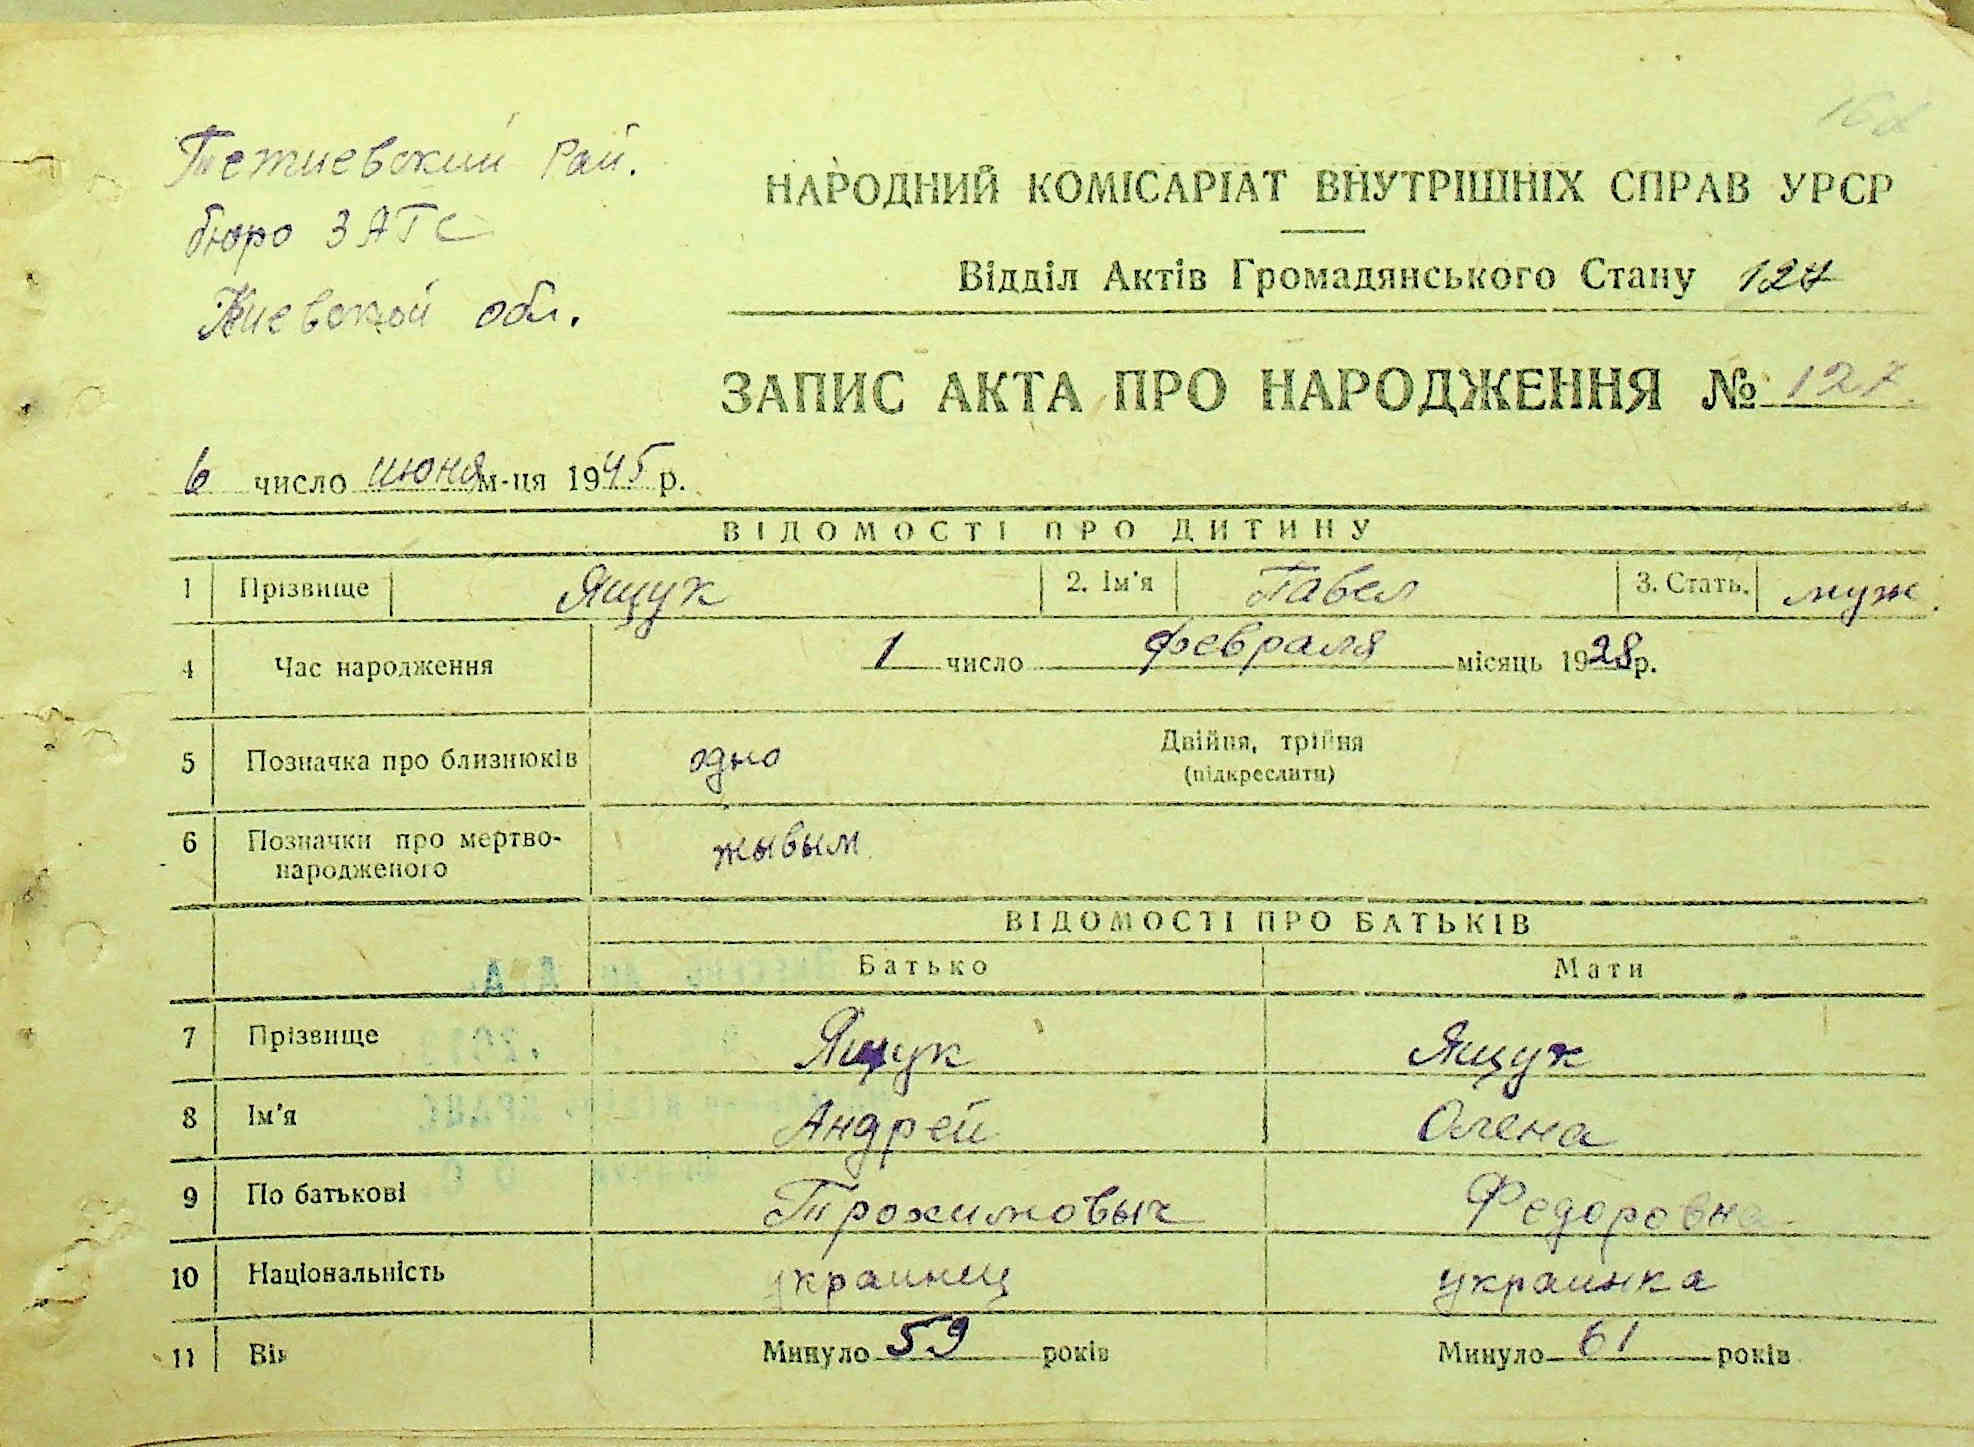 Тетиевский рай.
бюро ЗАГС
Киевской обл.
НАРОДНИЙ КОМІСАРІАТ ВНУТРІШНІХ СПРАВ УРСР
Відділ Актів Громадянського Стану 127
ЗАПИС АКТА ПРО НАРОДЖЕННЯ № 127
6 число июня м-ця 1945 р.
ВІДОМОСТІ ПРО ДИТИНУ
1 Прізвище Ящук 2. Ім'я Павел 3. Стать. муж.
4 Час народження 1 число февраля місяць 1928 р.
5 Позначка про близнюків одно Двійня, трійня
(підкреслити)
6 Позначки про мертво-
народженого жывым
ВІДОМОСТІ ПРО БАТЬКІВ
Батько Мати
7 Прізвище Ящук Ящук
8 Ім'я Андрей Олена
9 По батькові Трохимовыч Федоровна
10 Національність украинец украинка
11 Вік Минуло 59 років Минуло 61 років